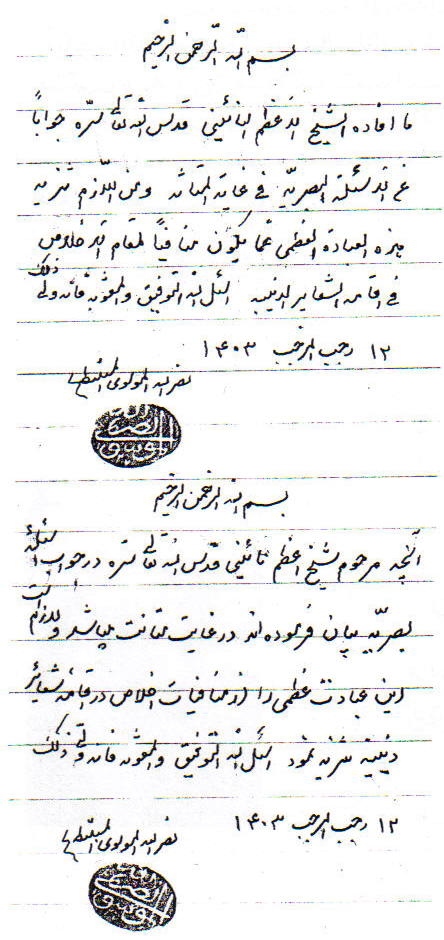 بسم الله الرحمن الرحیم
ما افاده الشیخ الاعظم النائینی قدس الله تعالی سره جواباً
عن الاسئلة البصریة فی غایة المتانة ومن اللازم تنزیه
هذه العبادة العظمی عما یکون منافیاً لمقام الاخلاص
فی اقامة الشعایر الدینیه اسئل الله التوفیق والمعونة فانه ولی ذلک
۱۲ رجب المرجب ۱۴۰۳
نصر الله الموسوی المستنبط
بسم الله الرحمن الرحیم
آنچه مرحوم شیخ اعظم نائینی قدس الله تعالی سره در جواب اسئله
بصریه بیان فرموده اند در غایت متانت میباشد و لازم است
این عبادت عظمی را از منافیات اخلاص در اقامه شعائر
دینیه تنزیه نمود اسئل الله التوفیق والمعونه فانه ولی ذلک
۱۲ رجب المرجب ۱۴۰۳
نصر الله الموسوی المستنبط